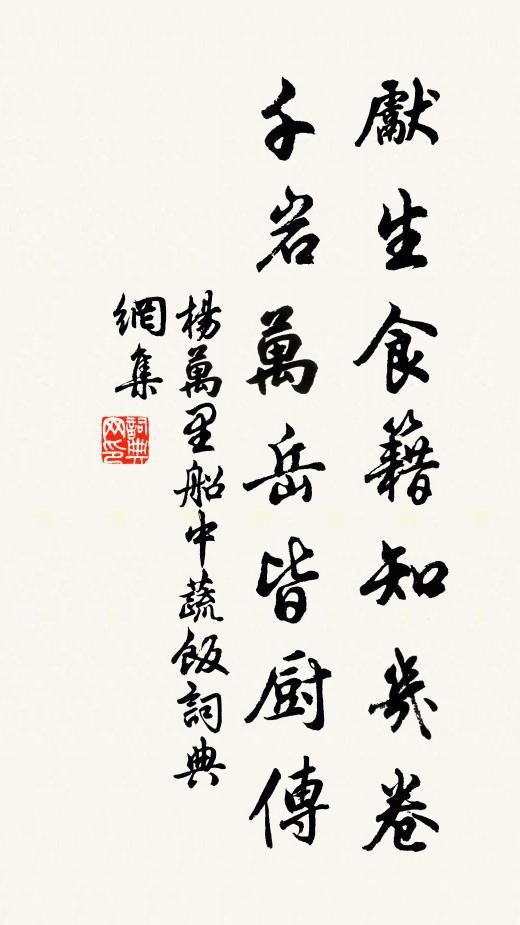 獻生食籍知幾卷
千岩萬岳皆厨傳
楊萬里船中蔬飯詞典
網集
詞典网印